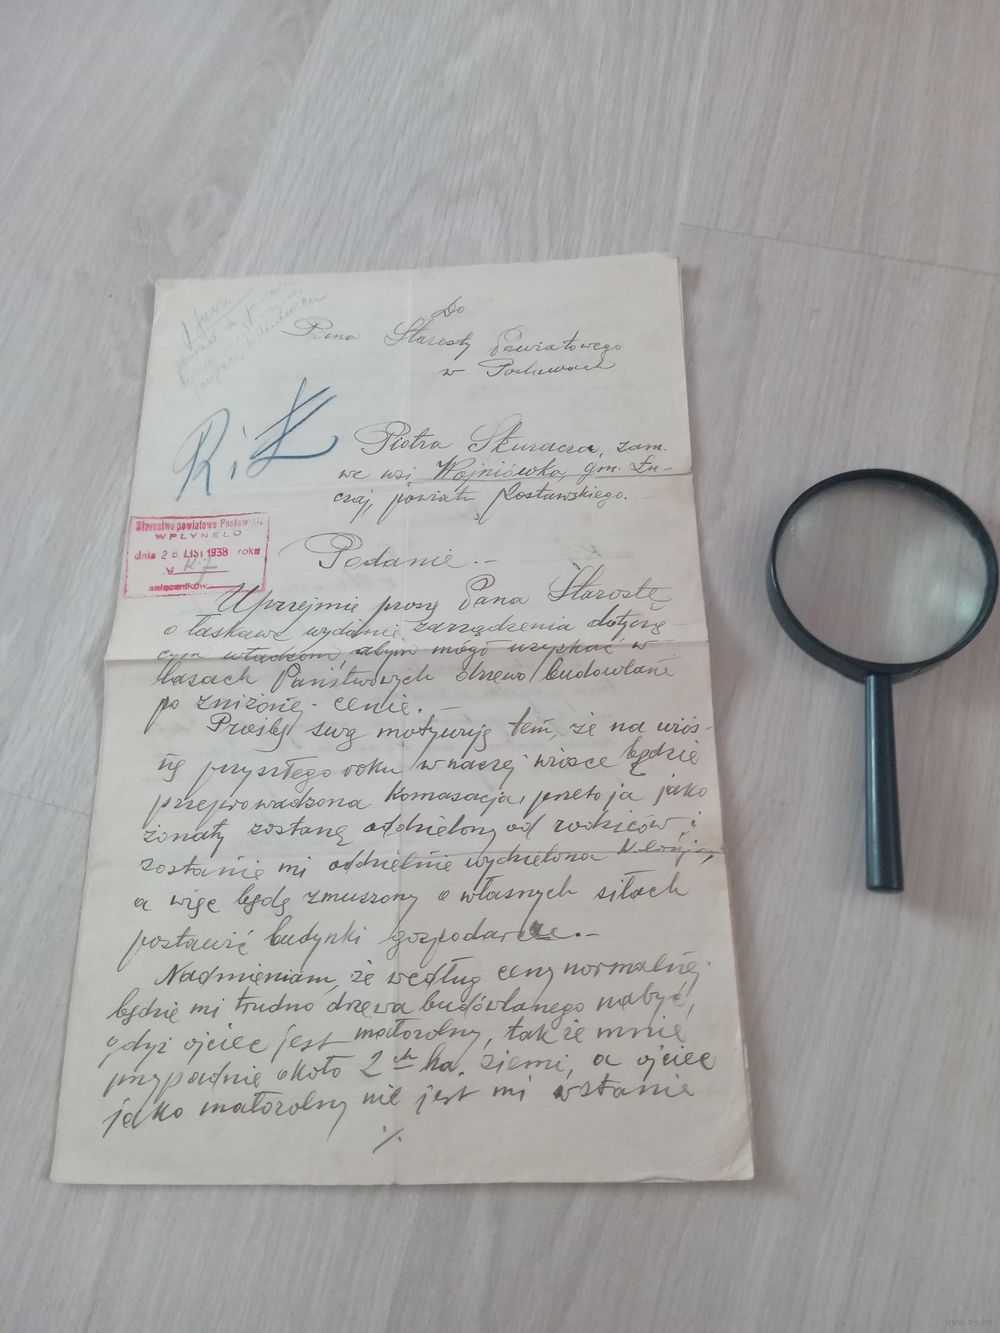 Do
Pana Starosty Powiatowego
w Postawach
R i Ż
Piotra Skuracza, zam.
we wsi Wojniówka, gm. Łu-
czaj, powiatu Postawskiego.
Starostwo powiatowe Postawskie
WPŁYNĘŁO
dnia 28 LIST 1938 roku
załączników
Podanie.-
Uprzejmie proszę Pana Starostę
o łaskawe wydanie zarządzenia dotyczą-
cym władzom, abym mógł uzyskać w
lasach Państwowych drzewo budowlane
po zniżonej cenie.-
Prośbę swą motywuję tem, że na wios-
nę przyszłego roku w naszej wiosce będzie
przeprowadzona komasacja, przeto ja jako
żonaty zostanę oddzielony od rodziców i
zostanie mi oddzielnie wydzielona
a więc będę zmuszony o własnych siłach
postawić budynki gospodarcze.-
Nadmieniam, że według ceny normalnej
będzie mi trudno drzewa budowlanego nabyć,
gdyż ojciec jest małorolny, tak że mnie
przypadnie około 2 ch ha. ziemi, a ojciec
jako małorolny nie jest mi wstanie
./.
www.ay.by